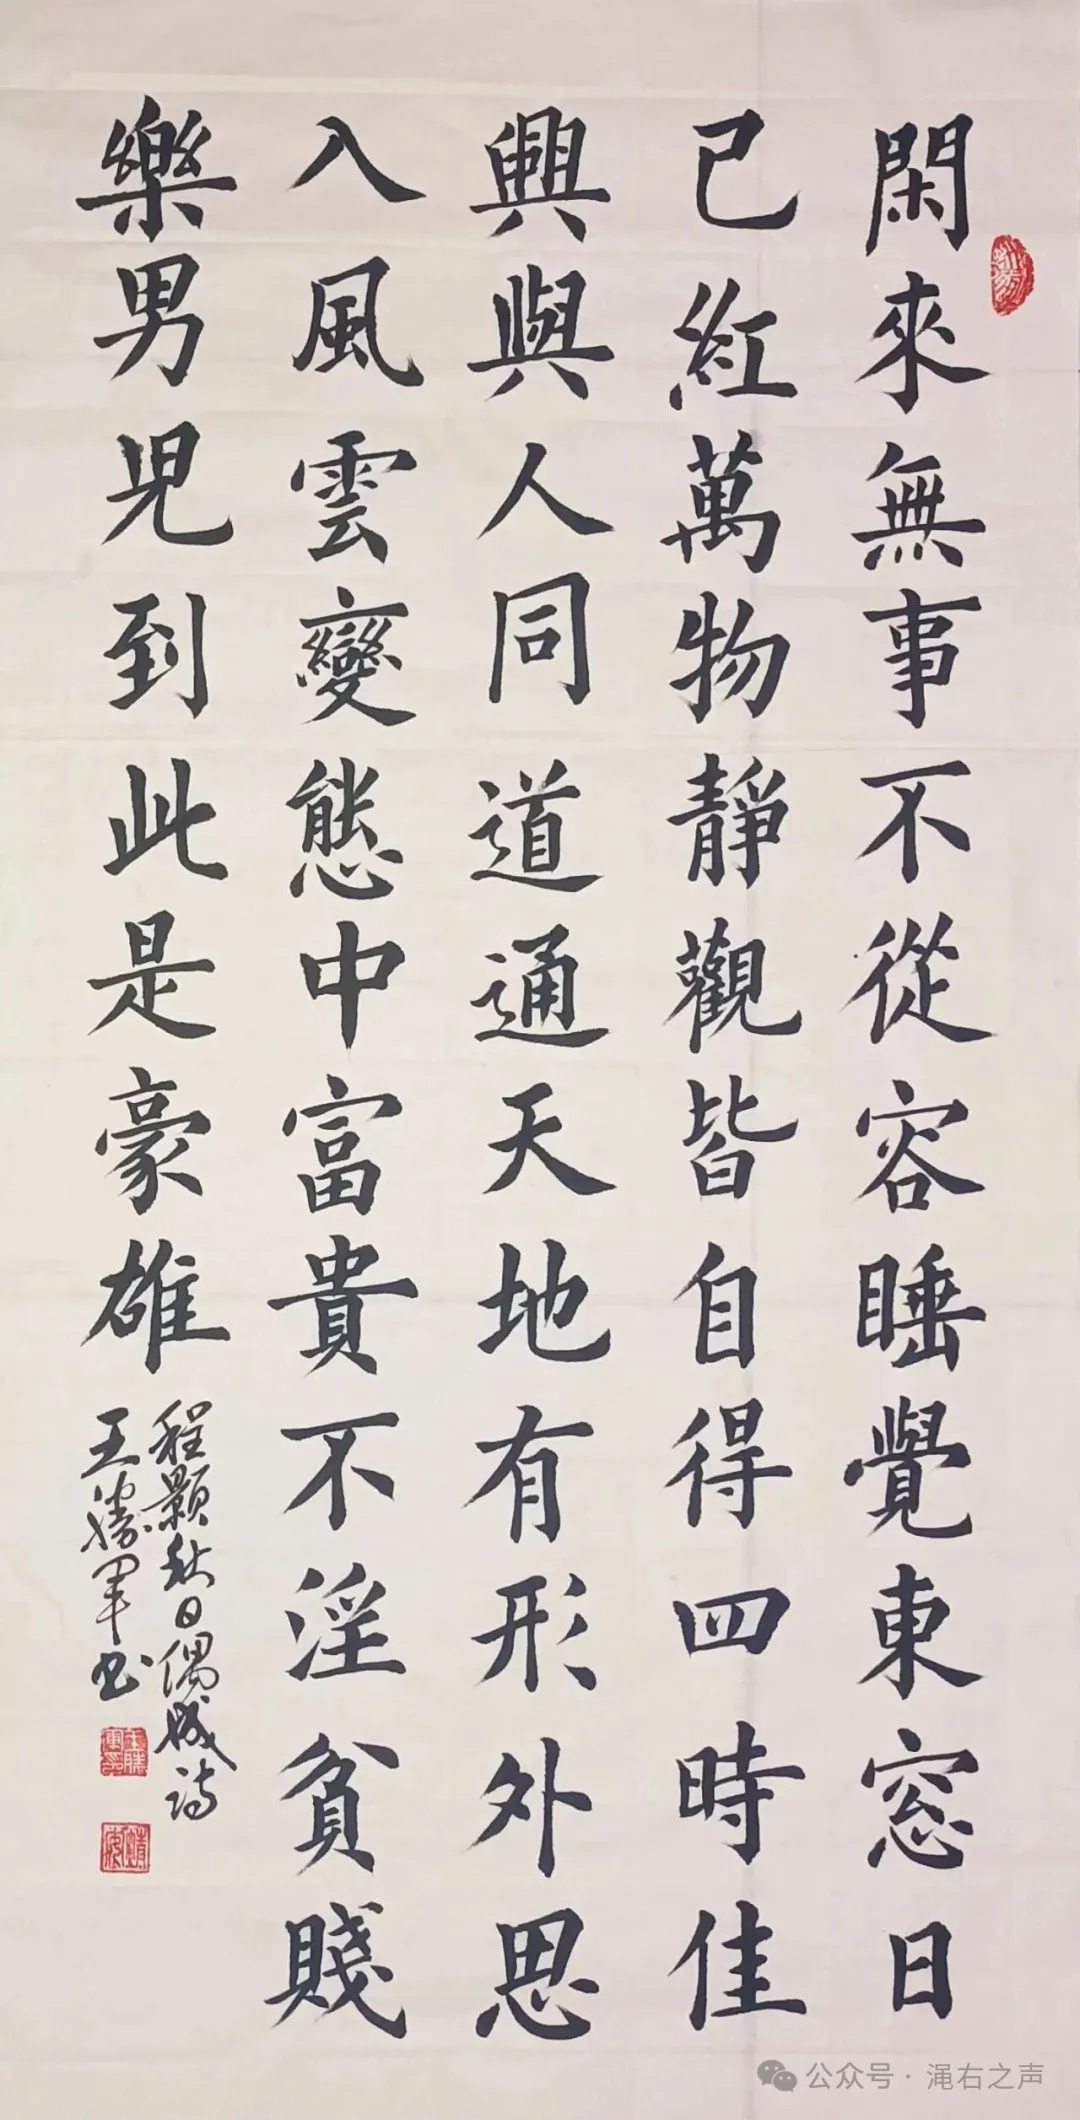 閑來無事不從容睡覺東窓日
已紅萬物靜觀皆自得四時佳
興與人同道通天地有形外思
入風雲變態中富貴不淫貧賤
樂男兒到此是豪雄
程顥秋日偶成詩
王勝軍书
公众号·渑右之声